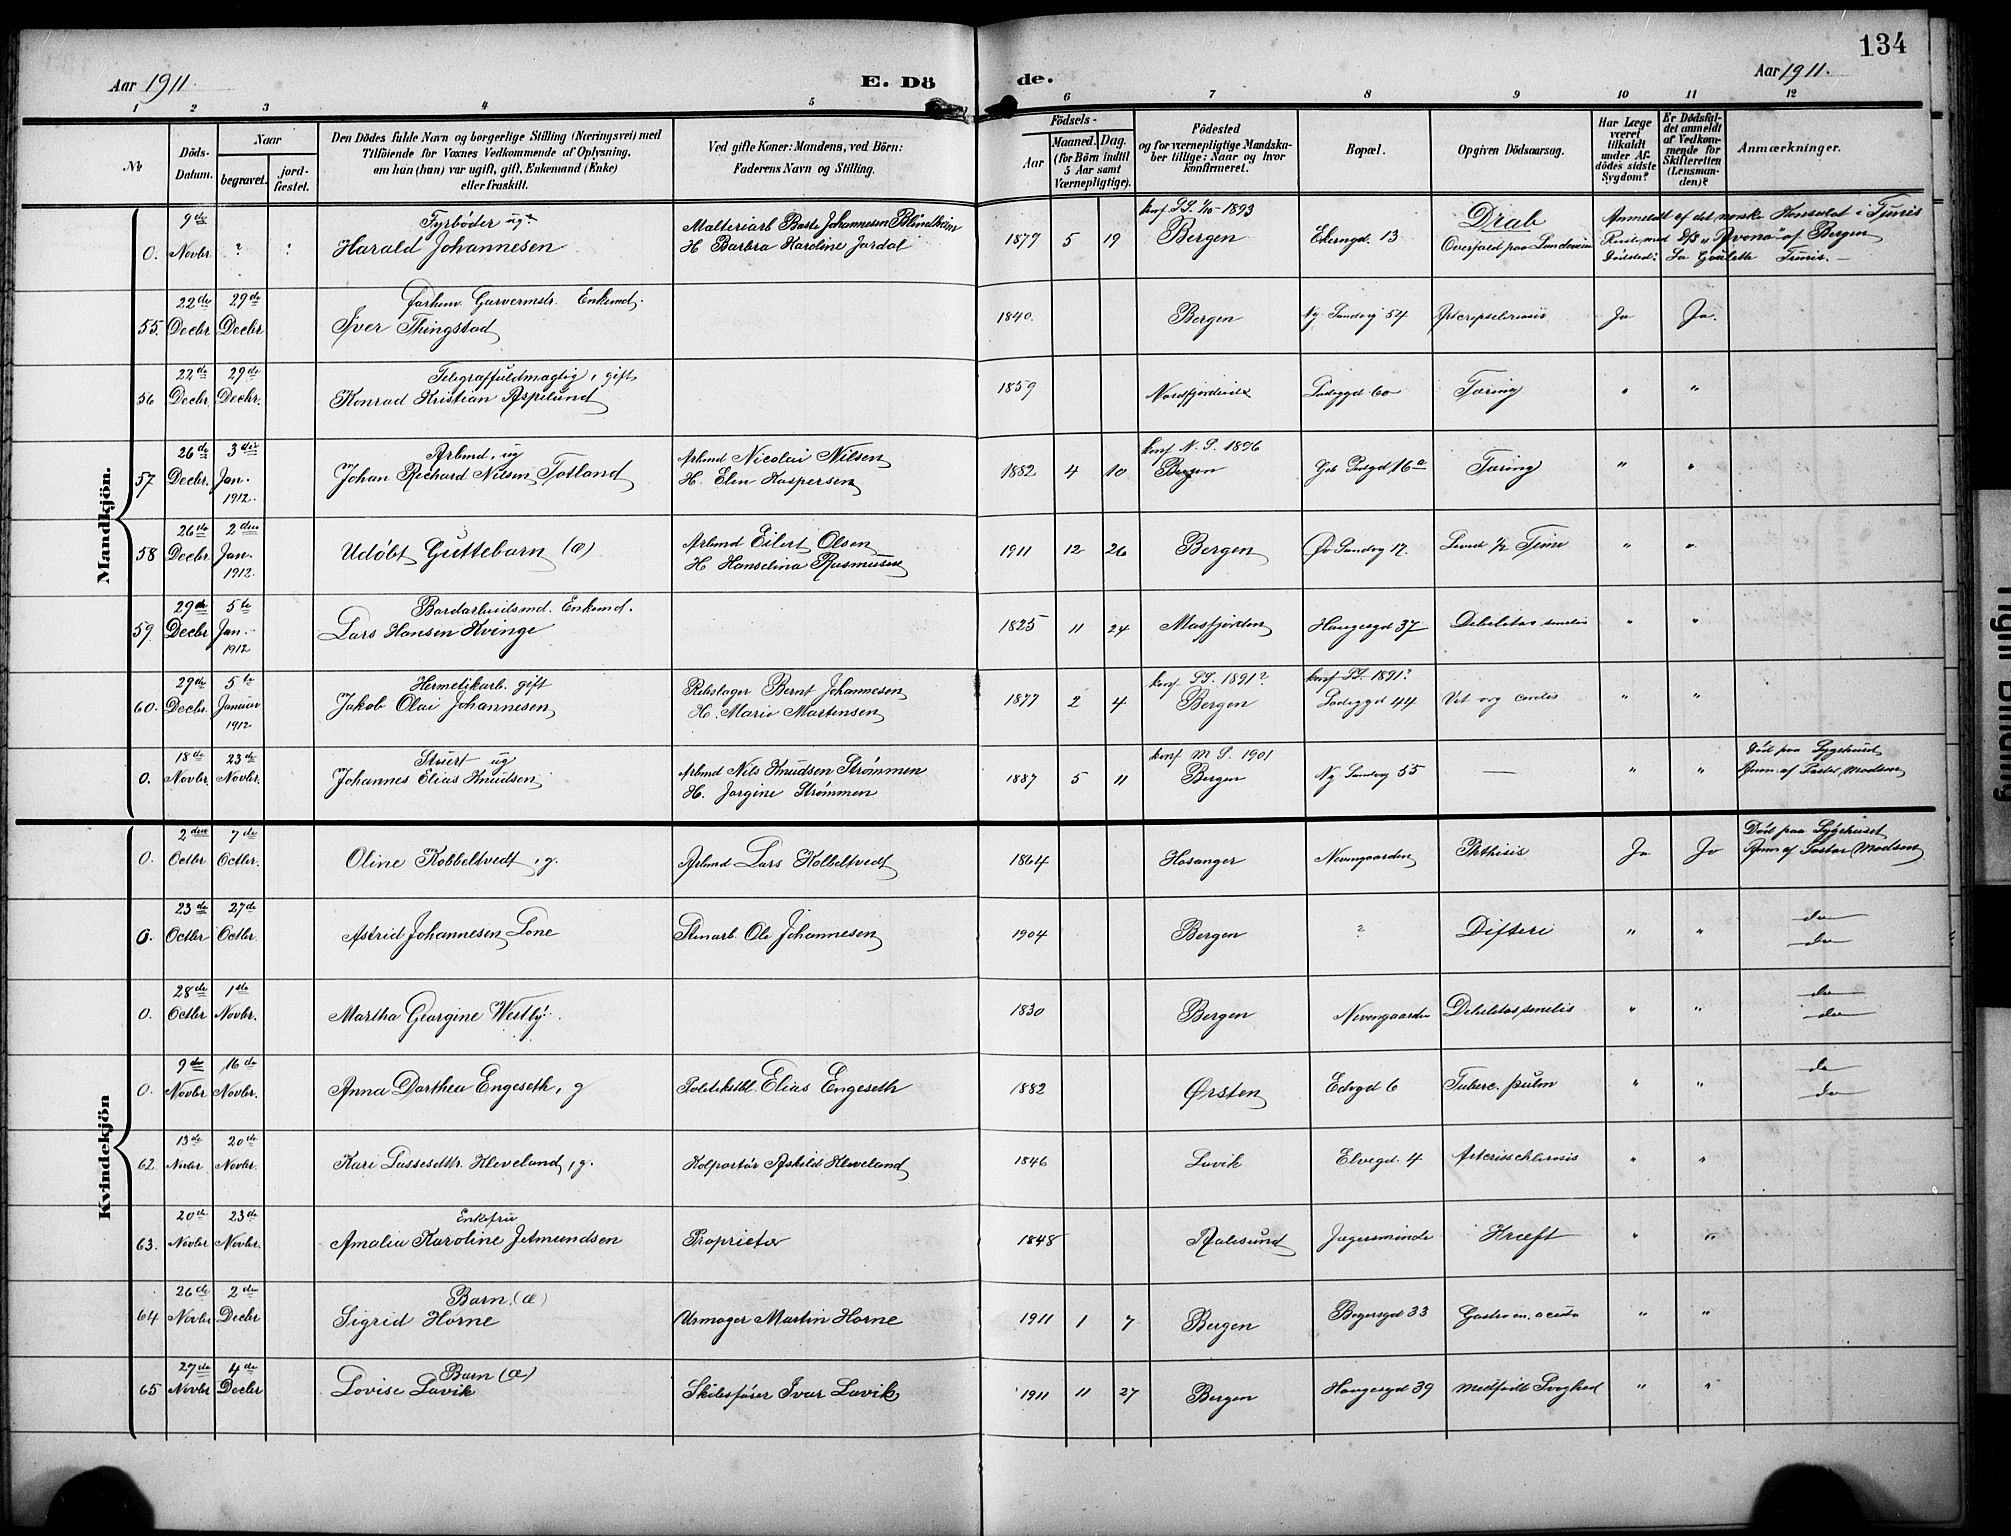 134
Aar 1911.
E. Dö
de.
Aar 1911.
1 2 3 4 5 6 7 8 9 10 11 12
No
Döds-Datum.
Naar
begravet.
jord-fæstet.
Den Dödes fulde Navn og borgerlige Stilling (Næringsvei) med
Tilföiende for Voxnes Vedkommende af Oplysning,
om han (hun) var ugift, gift, Enkemand (Enke)
eller fraskilt.
Ved gifte Koner: Mandens, ved Börn:
Faderens Navn og Stilling.
Födsels-
Aar
Maaned. Dag.
(for Börn indtil
5 Aar samt
Værnepligtige).
Födested
og for værnepligtige Mandska-
ber tillige: Naar og hvor
Konfirmeret.
Bopæl.
Opgiven Dödsaarsag.
Har Læge
været
tilkaldt
under Af-
dödes sidste
Sygdom?
Er Dödsfal-
det anmeldt
af Vedkom-
mende for
Skifteretten
(Lensman-
den)?
Anmærkninger.
Mandkjön.
9de Fyrbøder ug. konf 1893 Drab Anmeldt af det norske Konsulat i Tunis
0. Novbr " " Harald Johannesen Johannesen Blindheim 1879 5 19 Bergen 13 Overfald paa af Bergen
H. Barbra Karoline Jordal Goulette Tunis.
22de 29de Garvermstr. Enkemd.
55. Decbr Decbr Iver Thingstad 1840. Bergen Ny Sandvg 54 Ja Ja.
22de 29de Telegraffuldmægtig, gift
56 Decbr. Decbr. Konrad Kristian Aspelund 1859 Nordfjordeide Ladeggd 60 Tæring " "
26de 3die Arbmd, ug Arbmd Nicolai Nilsen konf N. P. 1896
57 Decbr. Jan. 1912. Johan Richard Nilsen Totland H. Elen Kaspersen 1882 4 10 Bergen 16a Tæring " "
26de 2den Arbmd Eilert Olsen
58 Decbr Jan. 1912. Udøbt Guttebarn (æ) H Hanselina Rasmussen 1911 12 26 Bergen Øv Sandvg 17. Levede ½ Time " "
29de 5te Enkemd.
59. Decbr Jan. 1912 Lars Hansen Kvinge 1825 11 24 Masfjorden Haugesgd 37 Debilitas senilis " "
29de 5te Hermetikarb. gift Rebslager Bernt Johannesen konf SS. 1891? konf SS. 1891?
60. Decbr. Januar 1912 Jakob Olai Johannesen H. Marie Martensen 1877 2 4 Bergen Ladeggd 44 Vit. org cordis " "
18de 23de Stuert ug Arbmd Nils Knudsen Strømmen konf M S. 1901 Død paa Sygehuset
0. Novbr. Novbr. Johannes Elias Knudsen H. Jørgine Strømmen 1887 5 11 Bergen Ny Sandvg 55 — " " Anm. af Pastor Madsen
Kvindekjön
2den 7de Død paa Sygehuset
0. Octbr Octbr. Oline Kobbeltvedt, g. Arbmd Lars Kobbeltvedt 1864 Hosanger Nevengaarden Phthisis Ja Ja Anm af Pastor Madsen
23de 27de do
0. Octbr Octbr. Astrid Johannesen Lone Stenarb. Ole Johannesen 1904 Bergen ? Difteri " " do
28de 1ste do
0. Octbr Novbr. Martha Georgine Westby. 1830 Bergen Nevengaarden Debilitas senilis " " do
9de 16de do
0. Novbr Novbr. Anna Dorthea Engeseth, g Elias Engeseth 1882 Ørsten 6 Tuberc. pulm " " do
13de 20de
62. Novbr. Novbr. Kari Lassesdttr. Kleveland, g. Kolportør Askild Kleveland 1846 Lavik Elvegd. 4 " "
20de 23de Enkefru
63. Novbr Novbr. Amalia Karoline Jetmundsen Proprietær 1848 Aalesund Jægersminde Kræft " "
26de 2den Barn. (æ)
64 Novbr Decbr Sigrid Horne Urmager Martin Horne 1911 1 7 Bergen 33 Gastro en. acuta " "
27de 4de Barn (æ)
65 Novbr Decbr Lovise Lavik Skibsfører Ivar Lavik 1911 11 27 Bergen Haugesgd 39 Medfødt Svaghed " "